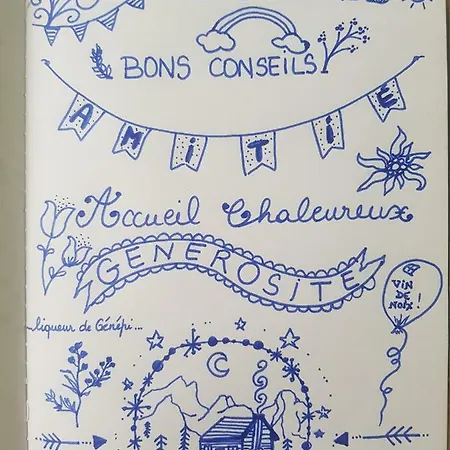 BONS CONSEILS
AMITIÉ
Accueil Chaleureux
GENEROSITE
VIN
DE
NOIX !
liqueur de Génépi...